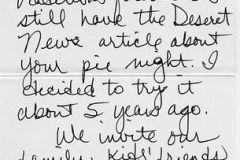 still have the Deseret
News article about
your pie night. I
decided to try it
about 5 years ago.
We invite our
family, kids' friends